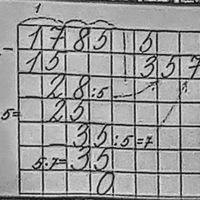 1
1785 5
15 357
28:5
25
5= 35:5=7
5·7=35
0